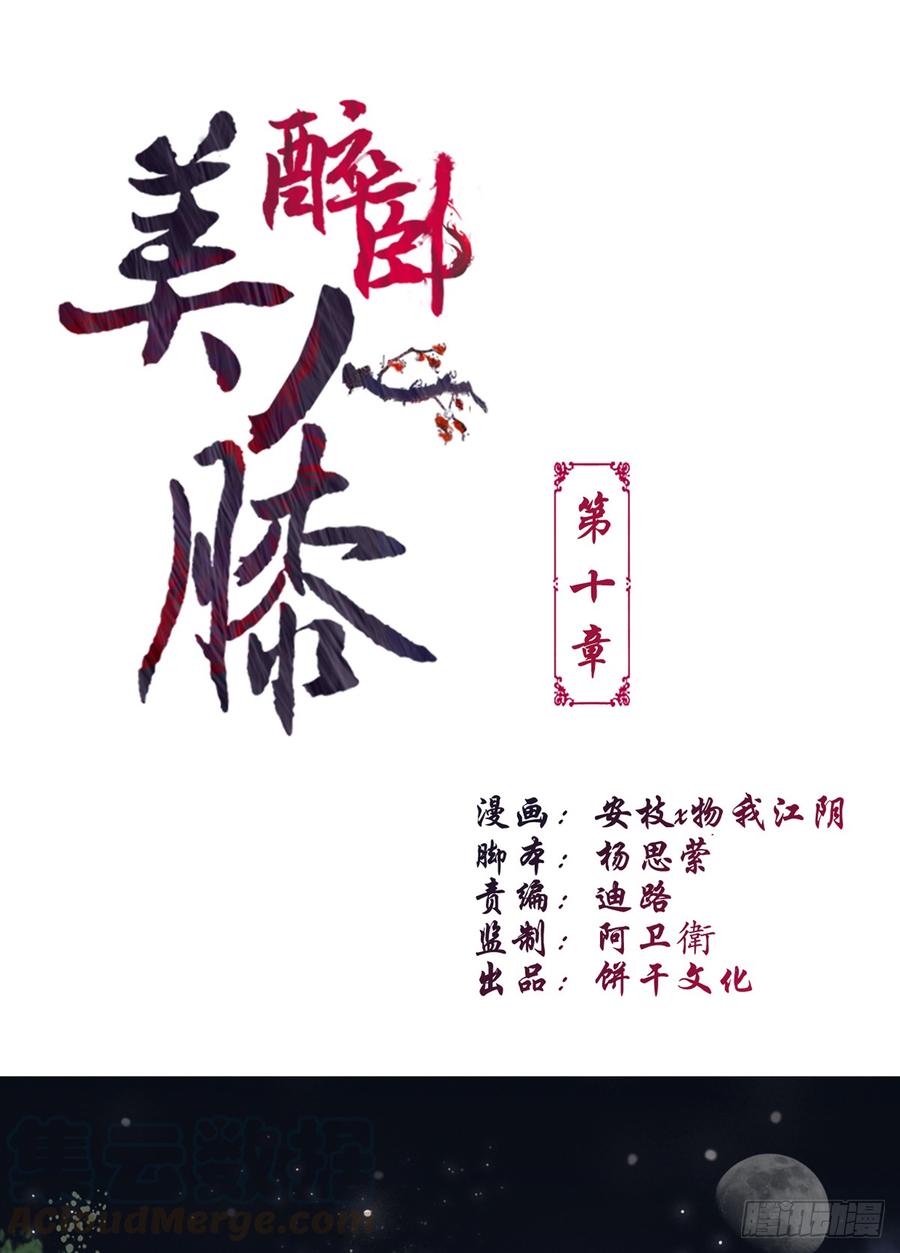 醉卧
美人膝
第十章
漫画：安枝x物我江阴
脚本：杨思萦
责编：迪路
监制：阿卫衛
出品：饼干文化
集云数据
AcloudMerge.com
腾讯动漫